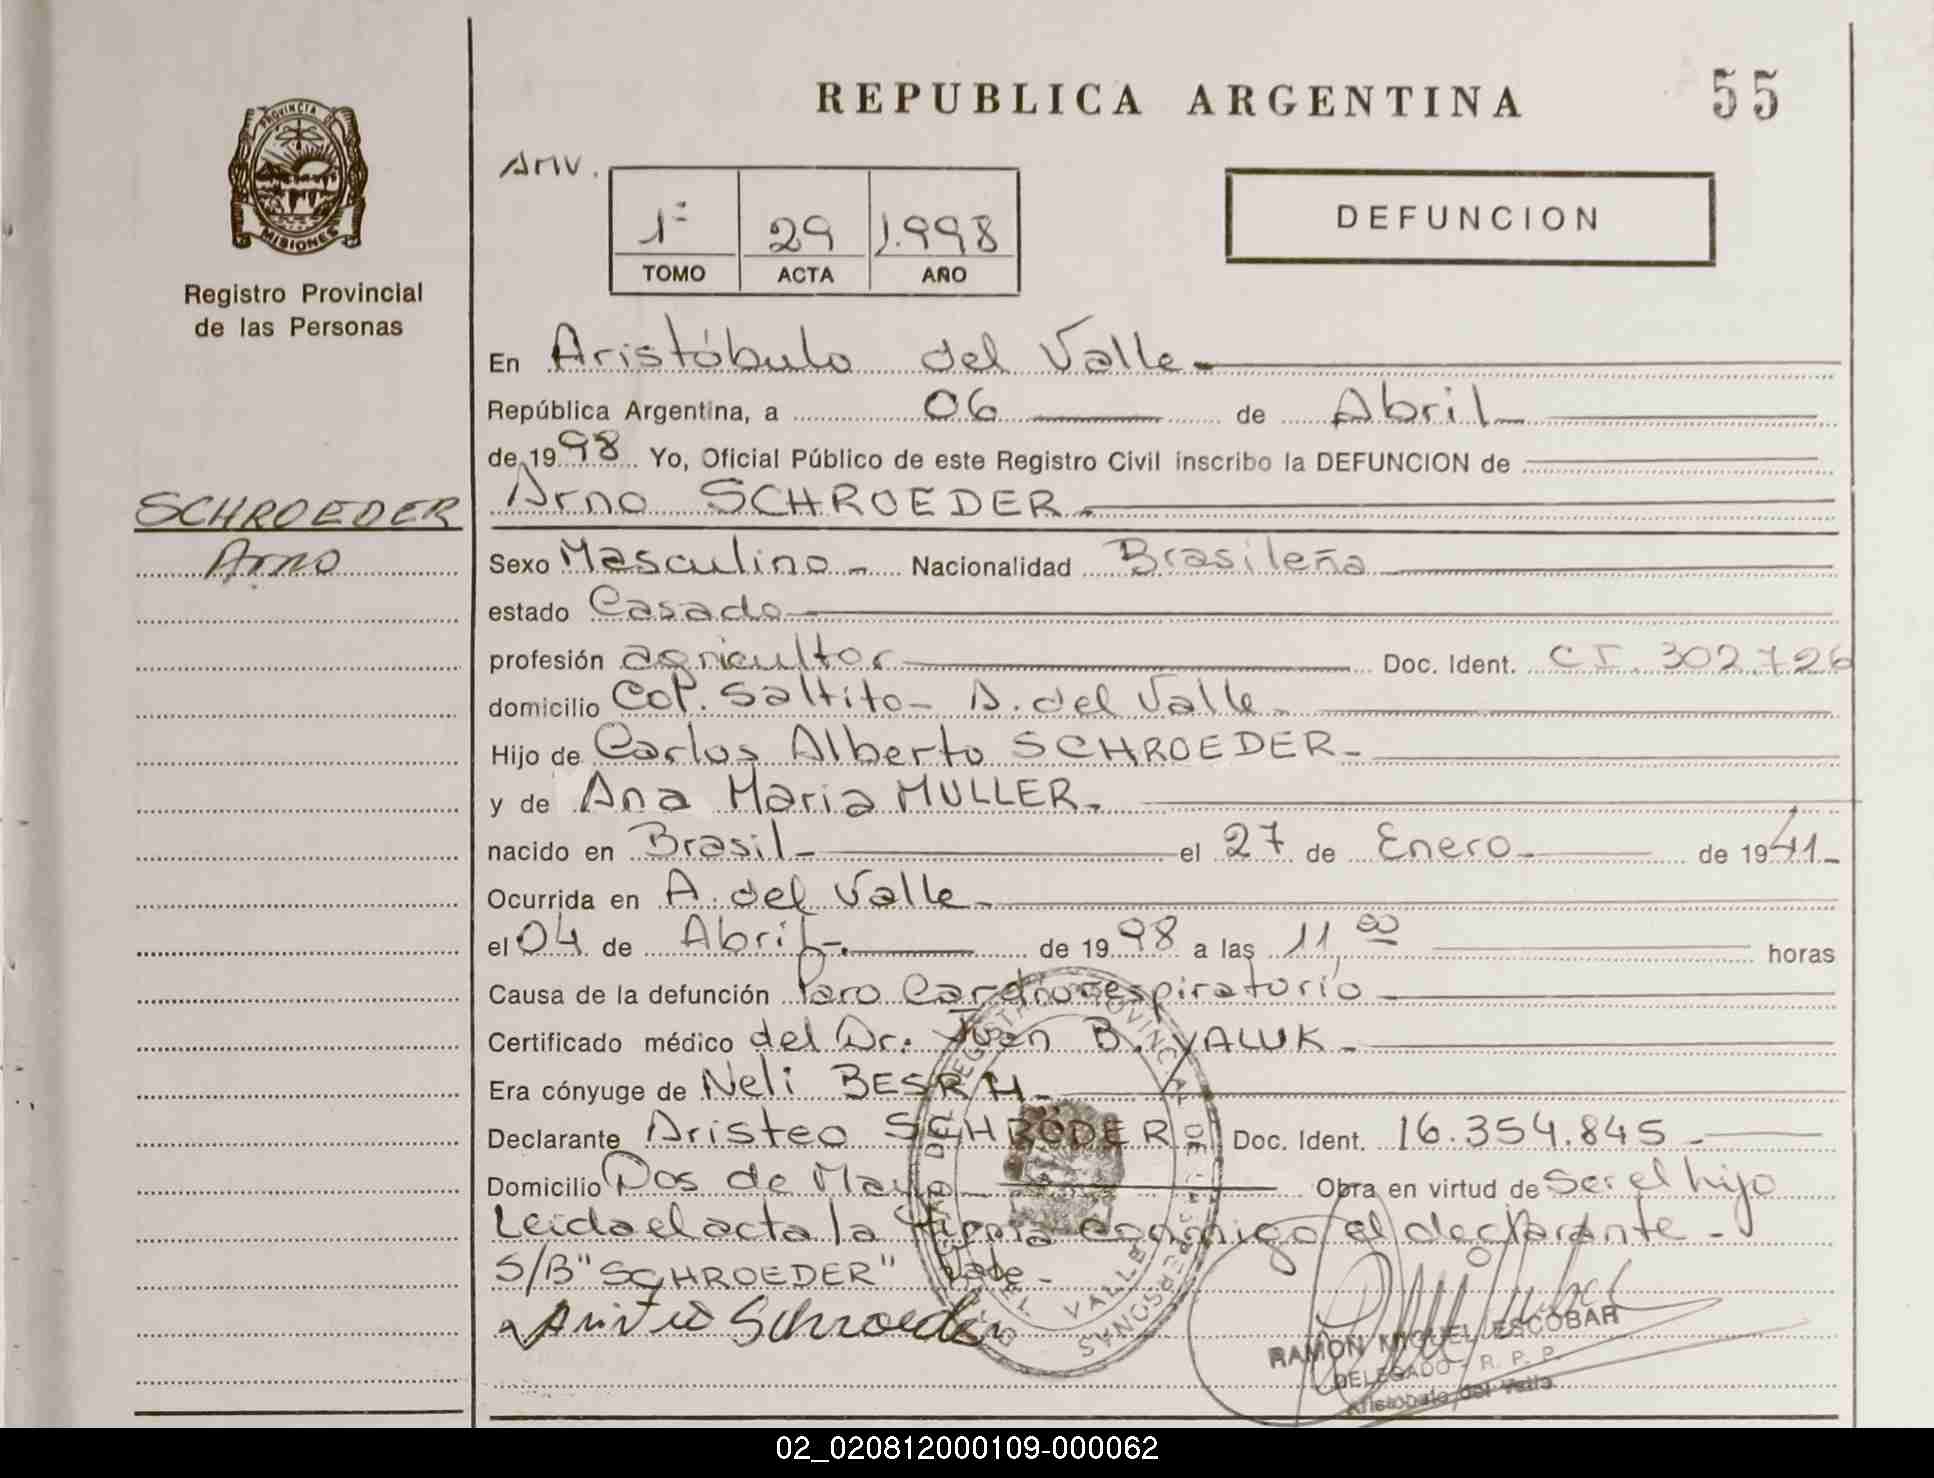 REPUBLICA ARGENTINA 55
PROVINCIA DE
MISIONES
Registro Provincial
de las Personas
Anv.
1ª 29 1.998
TOMO ACTA AÑO
DEFUNCION
En Aristóbulo del Valle
República Argentina, a 06 de Abril
de 1998 Yo, Oficial Público de este Registro Civil inscribo la DEFUNCION de
SCHROEDER
Arno
Arno SCHROEDER
Sexo Masculino Nacionalidad Brasileña
estado Casado
profesión agricultor Doc. Ident. CI. 302.726
domicilio Col. Saltito - A. del Valle
Hijo de Carlos Alberto SCHROEDER
y de Ana Maria MULLER
nacido en Brasil el 27 de Enero de 1941
Ocurrida en A. del Valle
el 04 de Abril de 1998 a las 11,00 horas
Causa de la defunción Paro Cardiorespiratorio
Certificado médico del Dr. Juan B. YALUK
Era cónyuge de Neli
Declarante Aristeo SCHRÖDER Doc. Ident. 16.354.845
Domicilio Dos de Mayo Obra en virtud de ser el hijo
Leida el acta la firma conmigo el declarante
S/B "SCHROEDER" Vale
Aristeo Schroeder
RAMON MIGUEL ESCOBAR
DELEGADO - R. P. P.
Aristóbulo del Valle
REGISTRO PROVINCIAL DE LAS PERSONAS
DEL VALLE
02_020812000109-000062